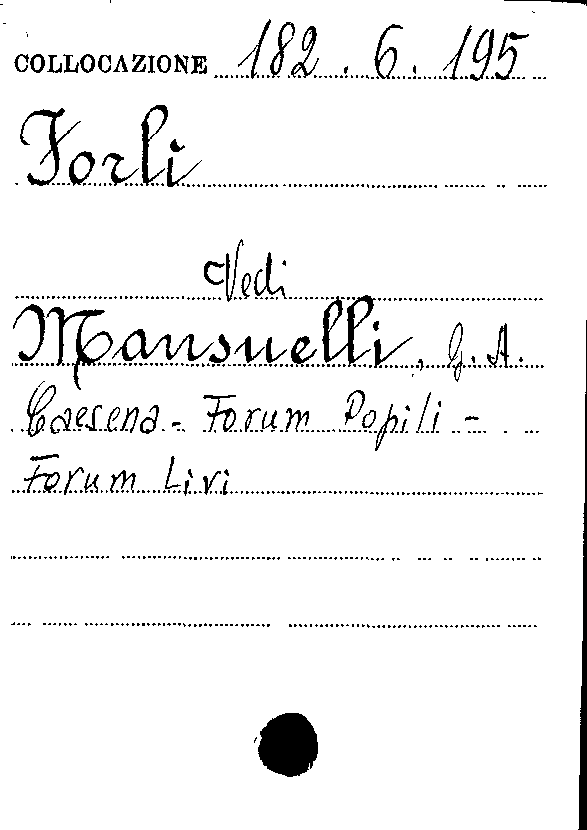 COLLOCAZIONE 182.6.195
Forli
Vedi
Mansuelli, G.A.
Caesena - Forum Popili -
Forum Livi